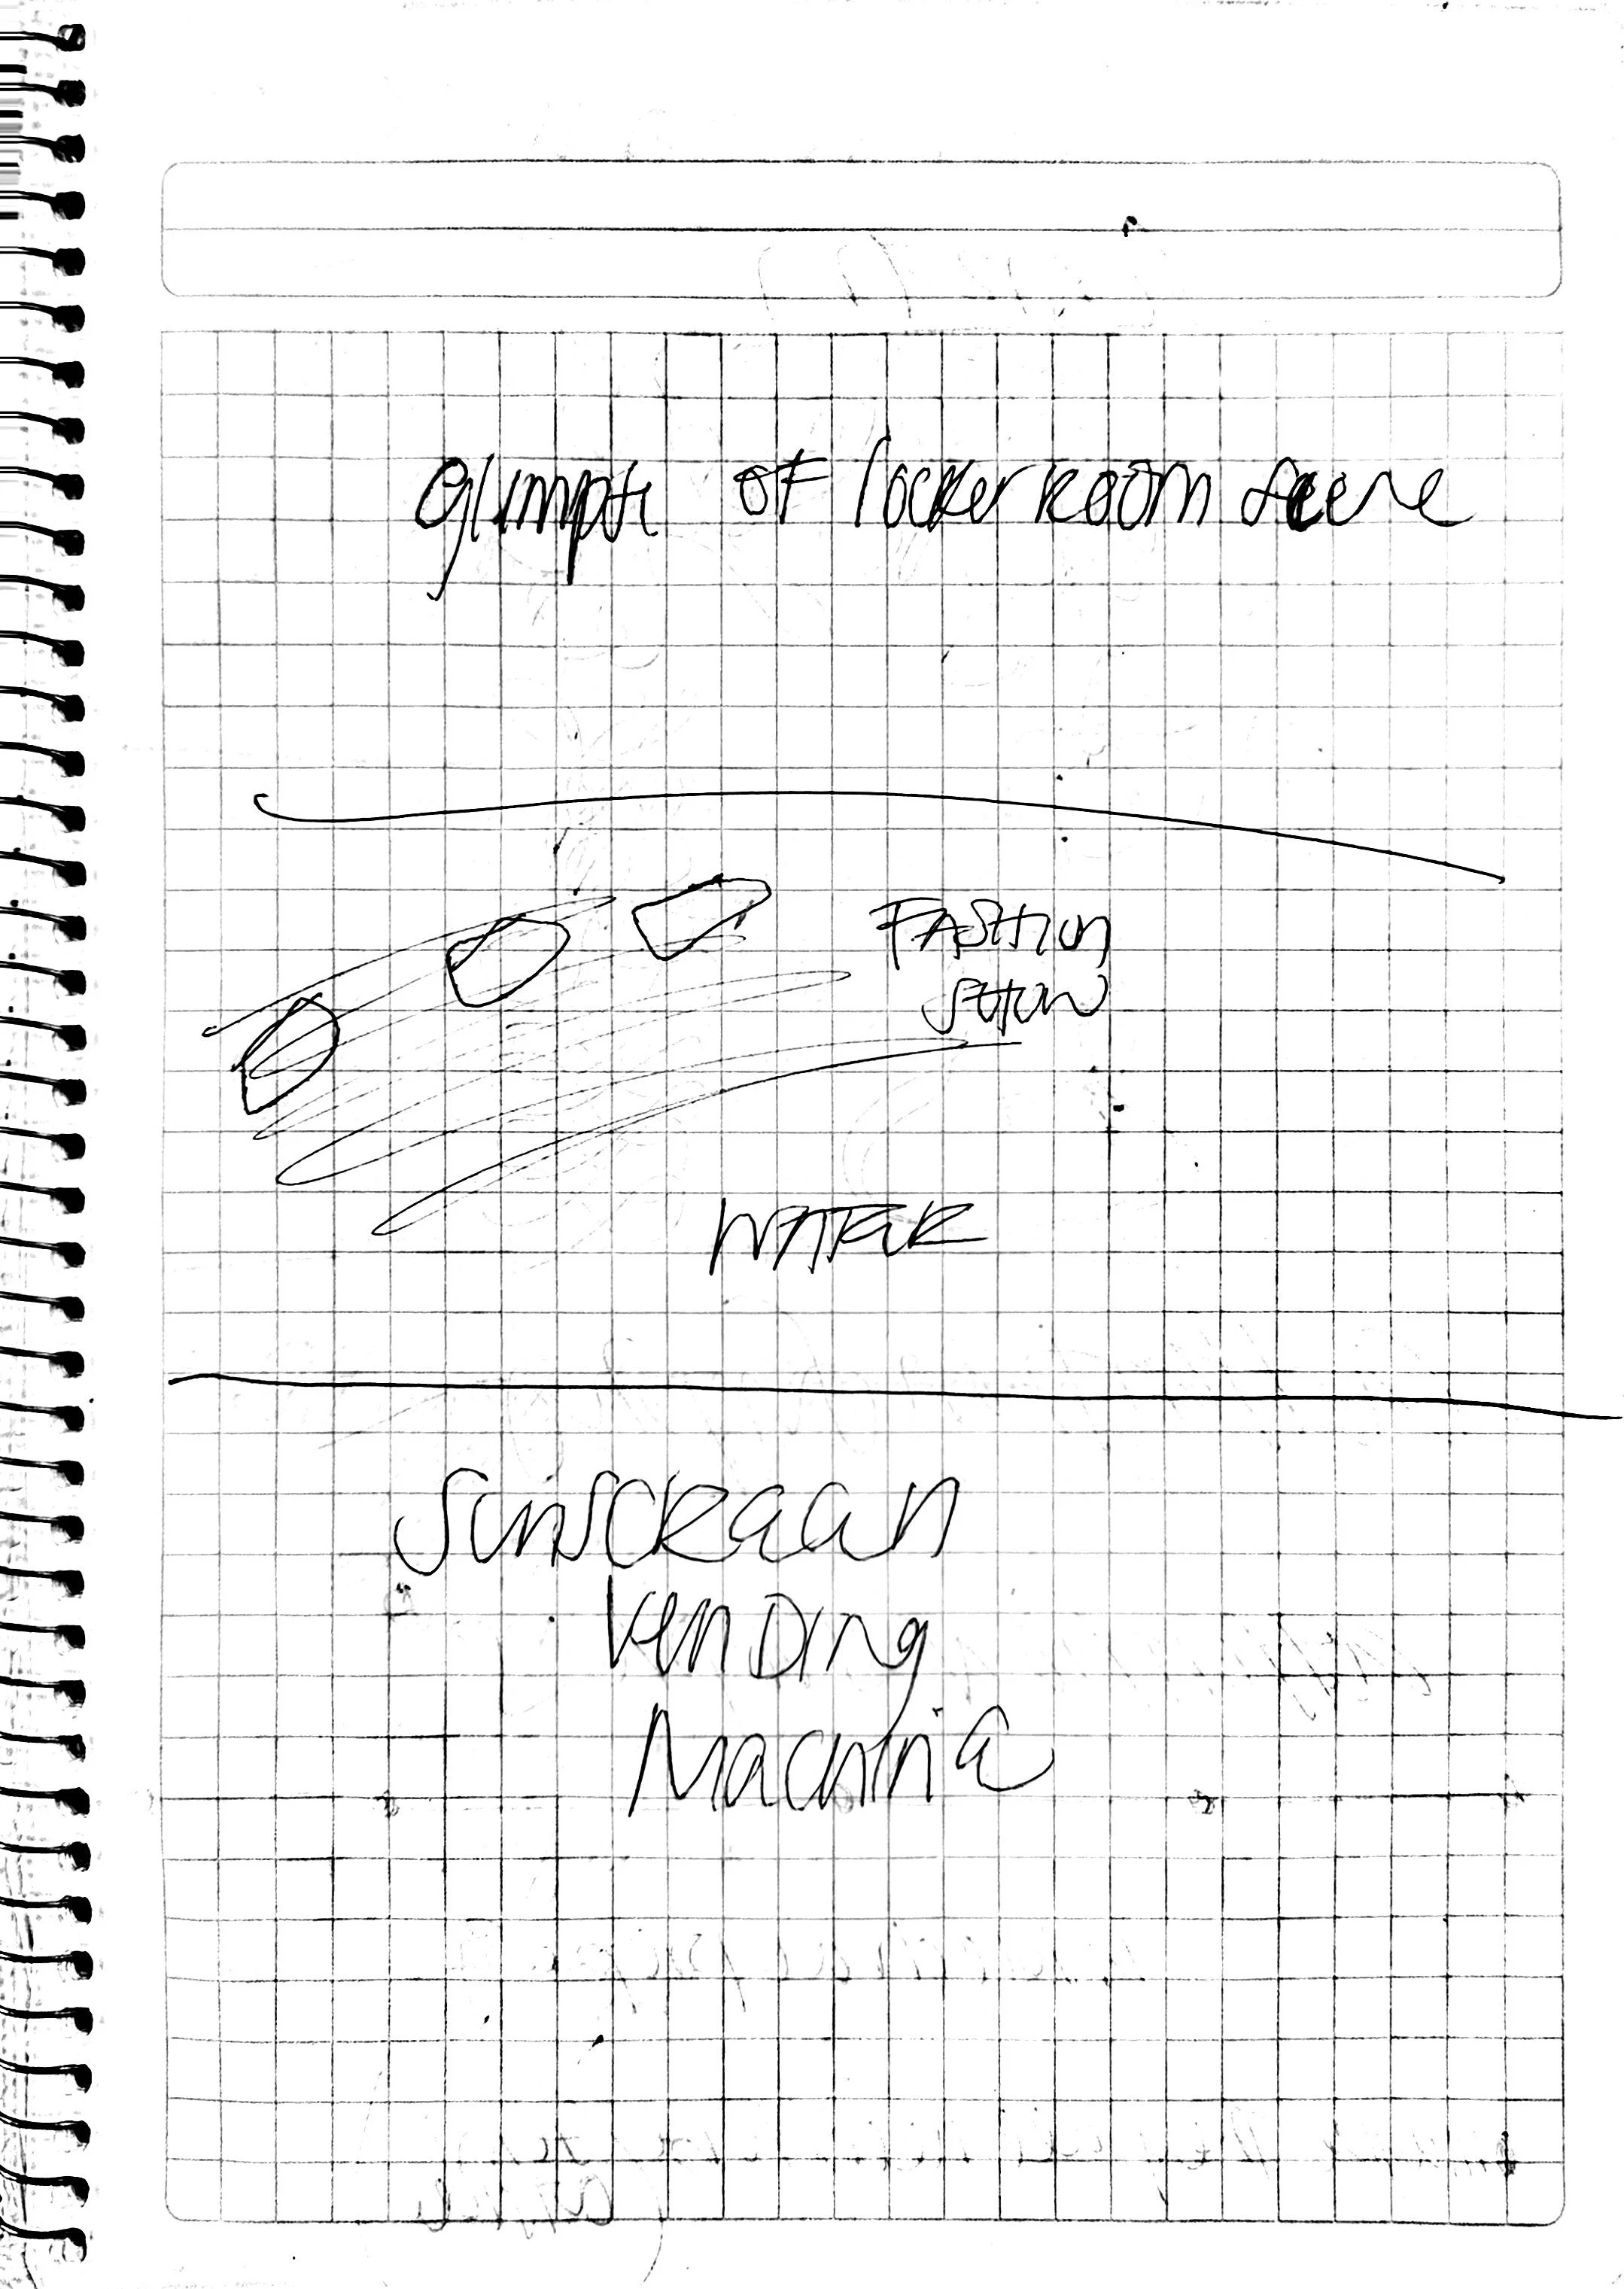 Glimpse of locker room scene
FASHION
SHOW
WATER
SUNSCREEN
VENDING
MACHINE